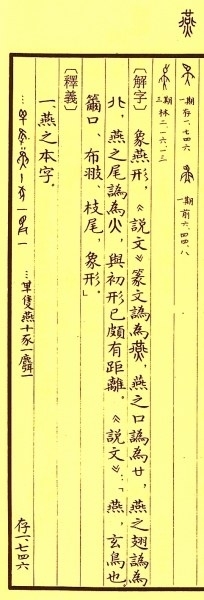 燕
一期存一、七四六 一期前六、四四、八
三期林二、一六、一三
〔解字〕 象燕形，《說文》篆文譌為燕，燕之口譌為廿，燕之翅譌為
北，燕之尾譌為火，與初形已頗有距離。《說文》：「燕，玄鳥也。
籋口、布翄、枝尾，象形。」
〔釋義〕
一、燕之本字。
…單隻燕十豕一麑一 存一、七四六